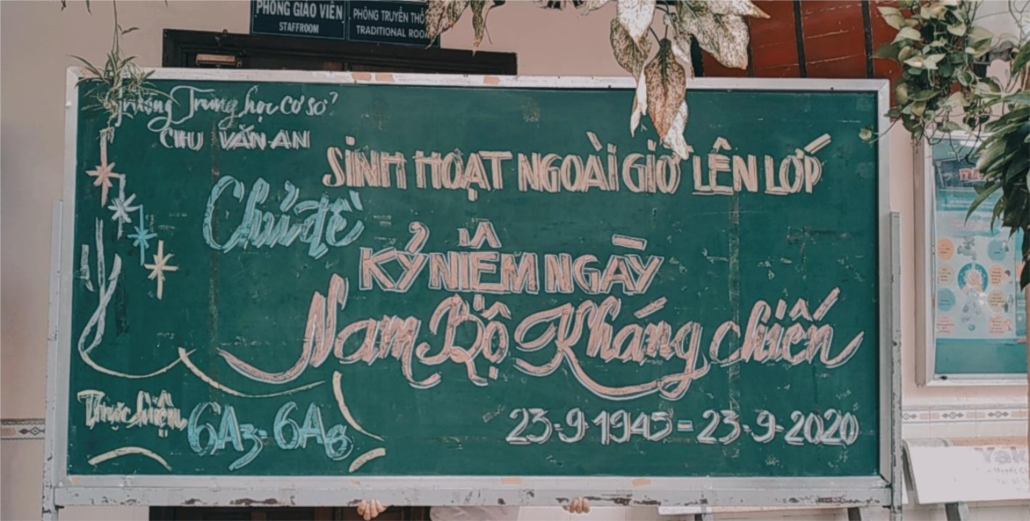 PHÒNG GIÁO VIÊN
STAFFROOM
PHÒNG TRUYỀN THỐ
TRADITIONAL ROOM
Trường Trung học Cơ sở
CHU VĂN AN
SINH HOẠT NGOÀI GIỜ LÊN LỚP
Chủ đề
KỶ NIỆM NGÀY
Nam Bộ Kháng chiến
Thực hiện 6A3-6A6
23-9-1945-23-9-2020